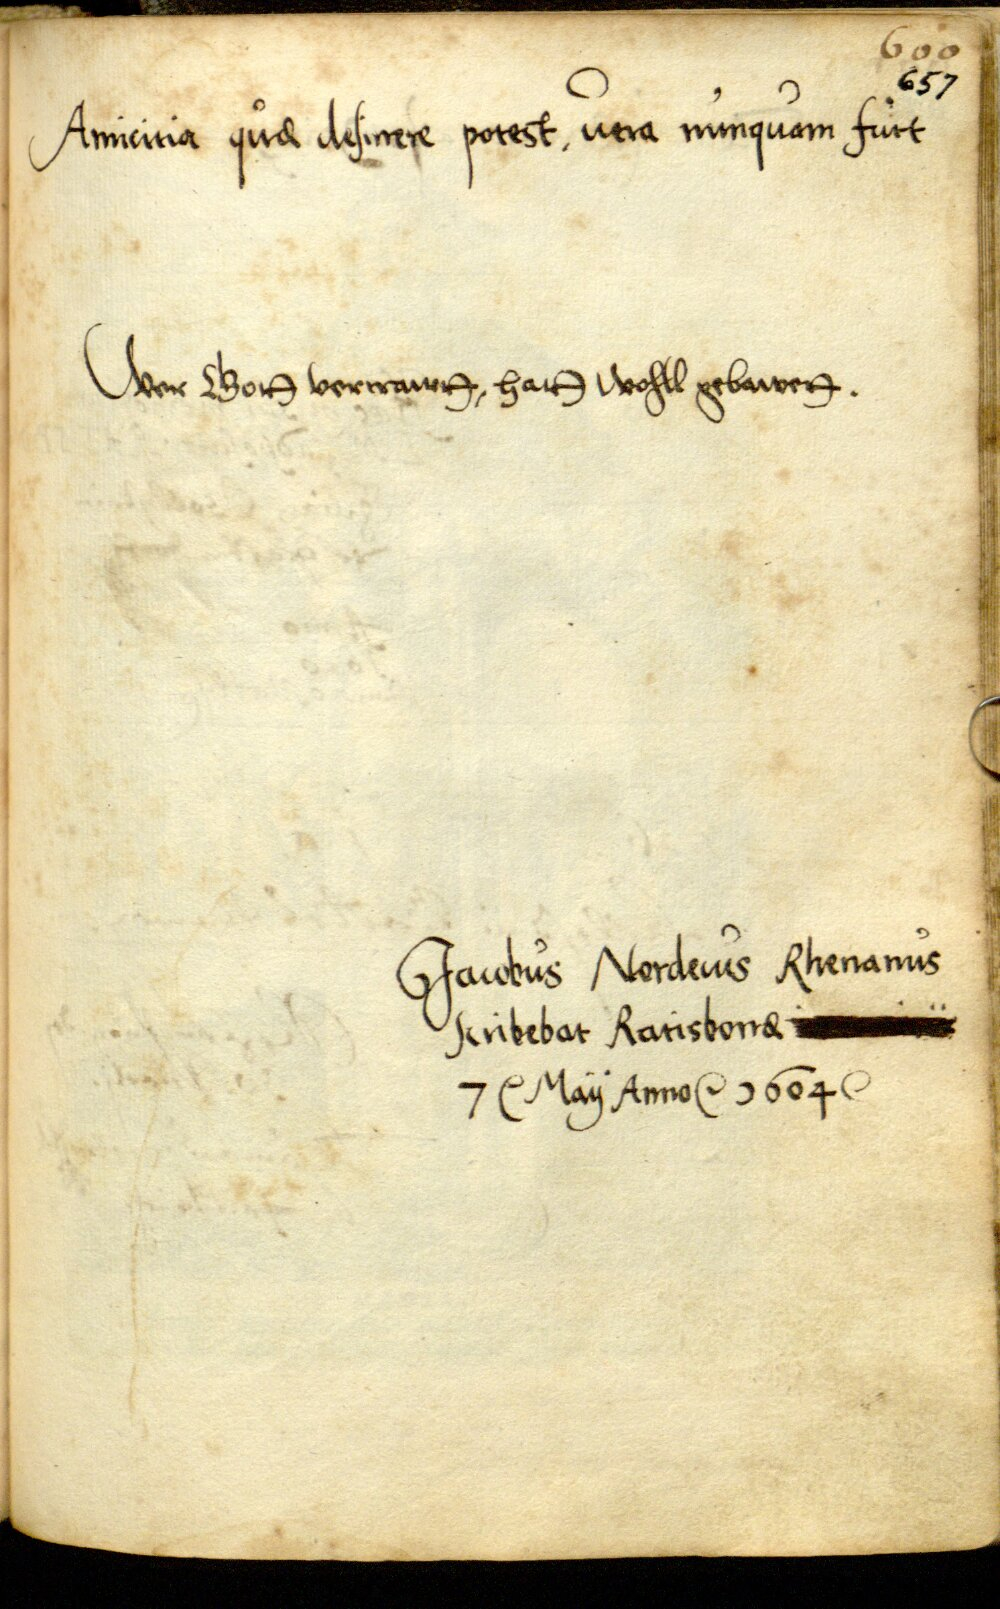 600
657
Amicitia quæ desinere potest, vera nunquam fuit
Wer Gott vertrawet, hatt wohll gebawett.
Jacobus Nordeius Rhenanus
scribebat Ratisbonæ
7 Maÿ Anno 1604